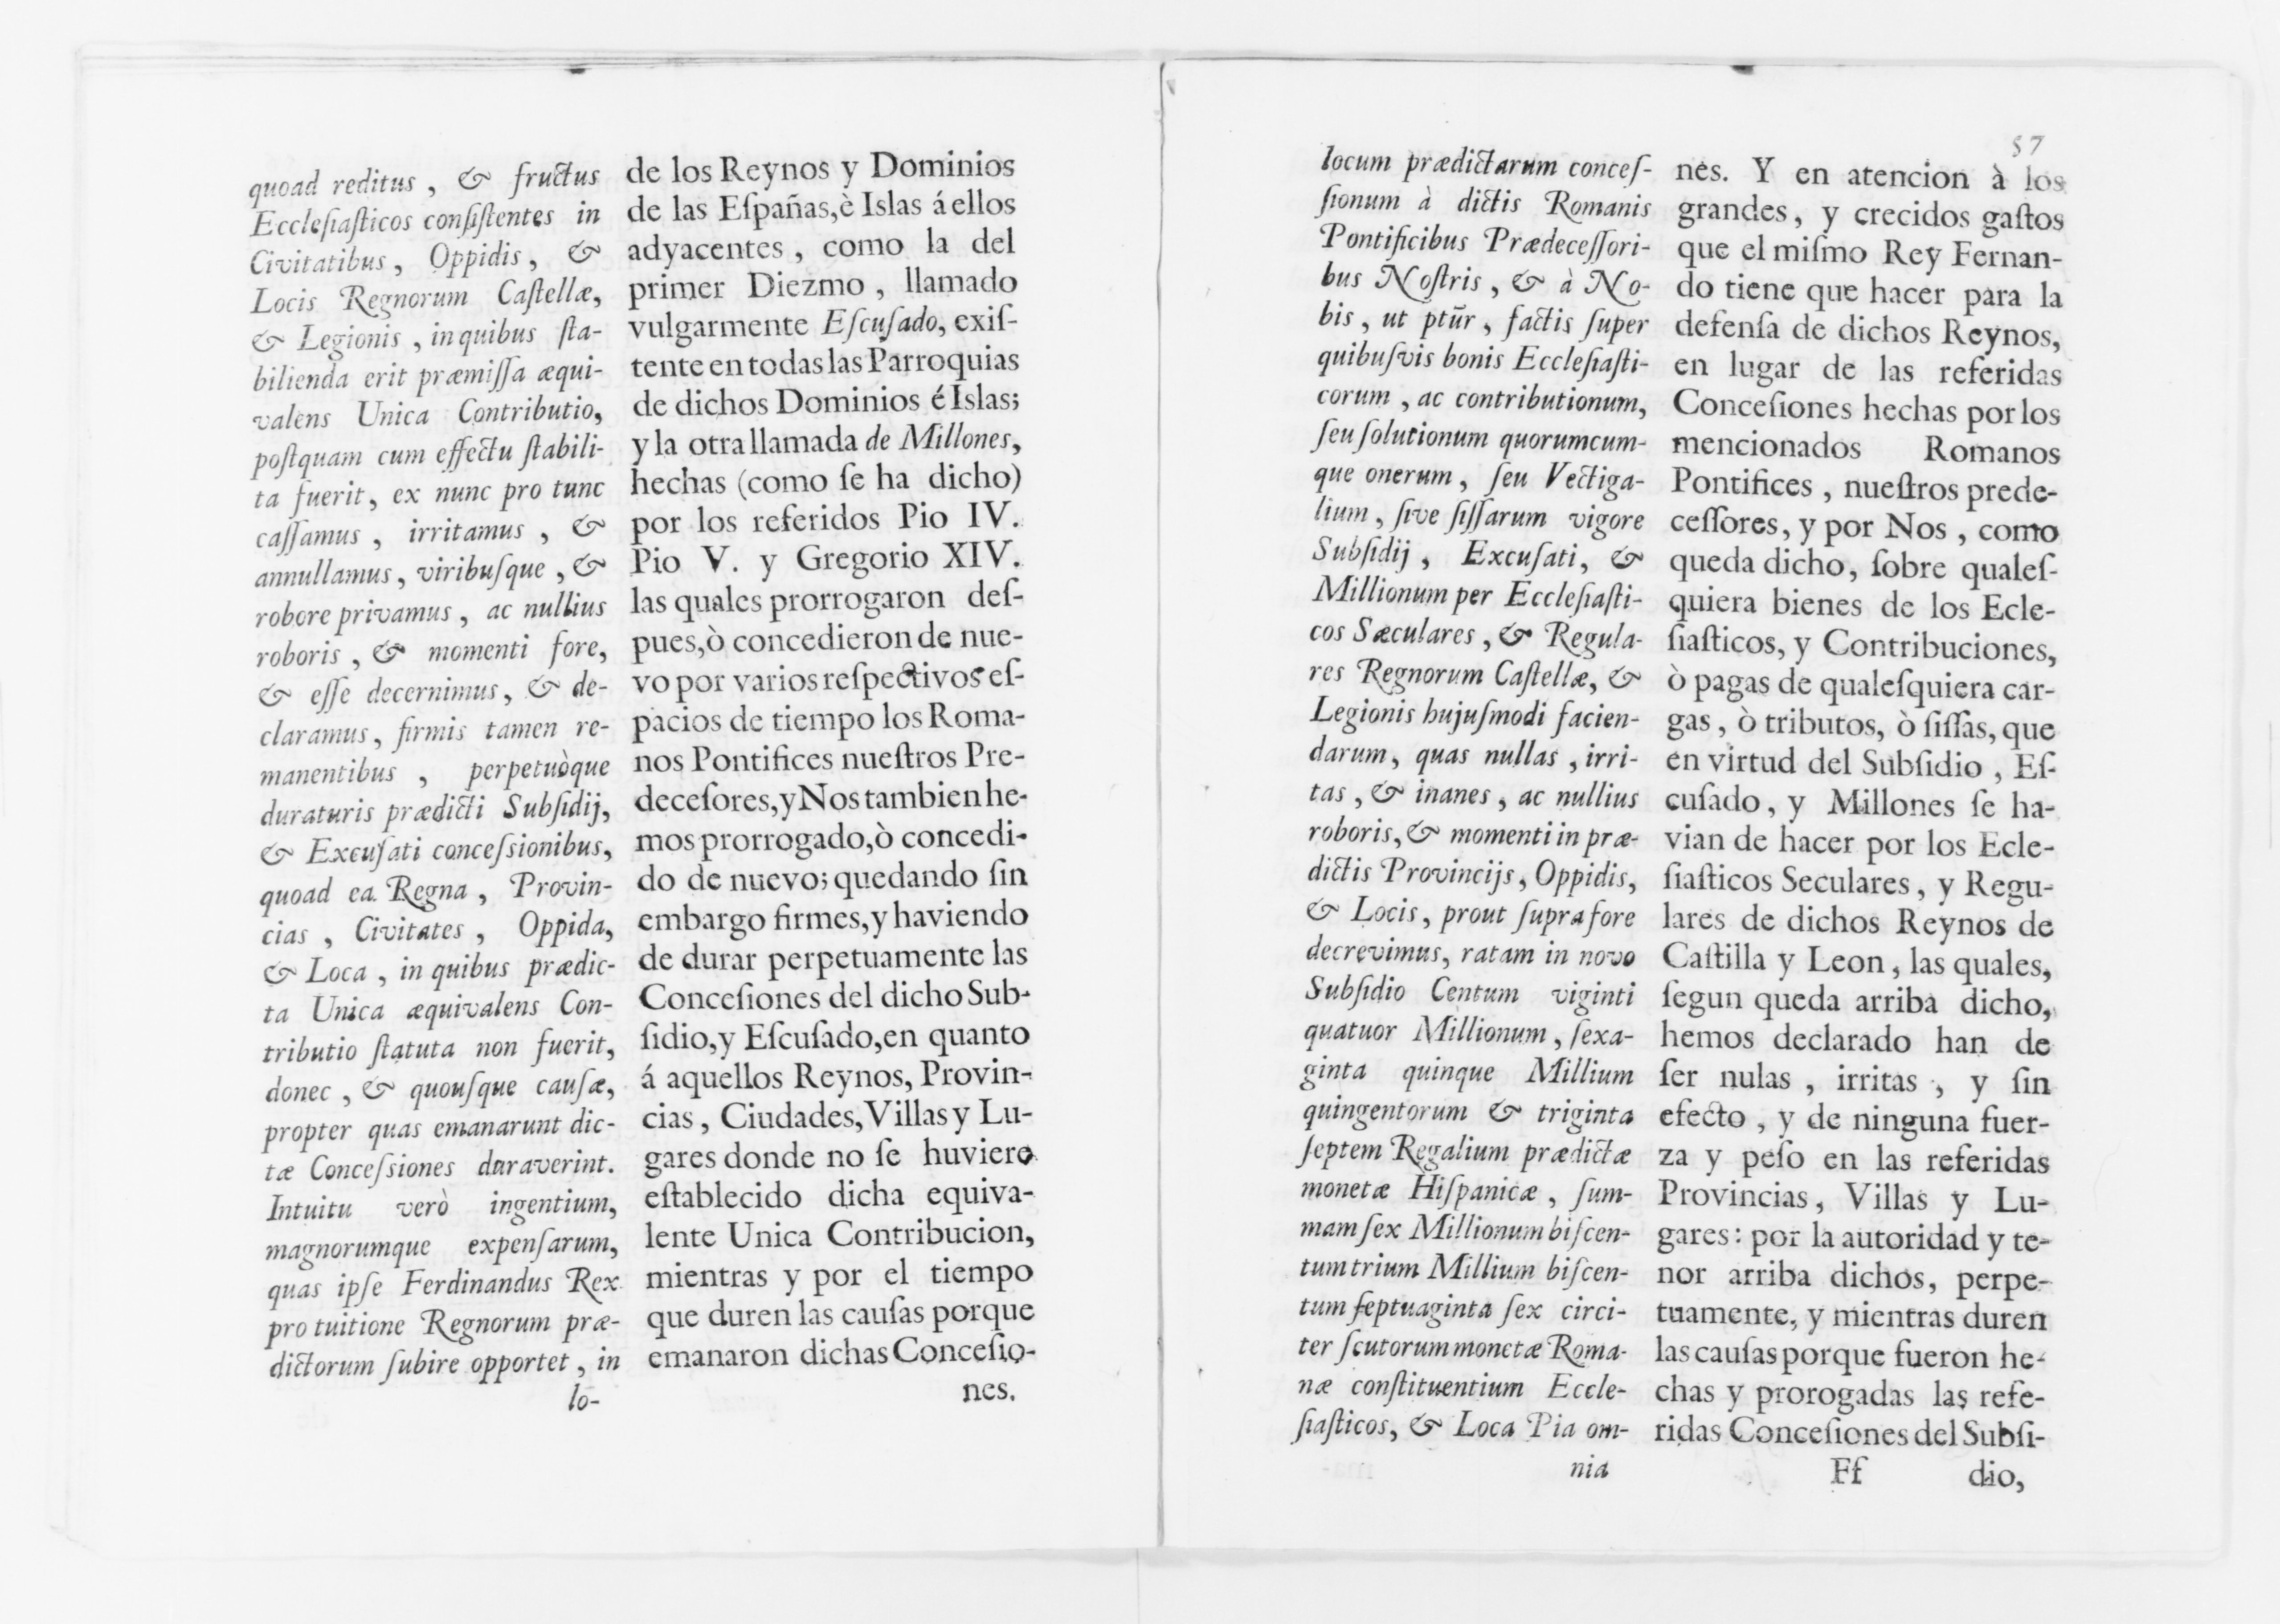 quoad reditus , & fructus
Eccleſiaſticos conſiſtentes in
Civitatibus , Oppidis , &
Locis Regnorum Caſtellæ,
& Legionis , in quibus ſta-
bilienda erit præmiſſa æqui-
valens Unica Contributio,
poſtquam cum effectu ſtabili-
ta fuerit, ex nunc pro tunc
caſſamus , irritamus , &
annullamus, viribuſque , &
robore privamus , ac nullius
roboris , & momenti fore,
& eſſe decernimus, & de-
claramus, firmis tamen re-
manentibus , perpetuòque
duraturis prædicti Subſidij,
& Excuſati conceſsionibus,
quoad ea Regna , Provin-
cias , Civitates , Oppida,
& Loca , in quibus prædic-
ta Unica æquivalens Con-
tributio ſtatuta non fuerit,
donec , & quouſque cauſæ,
propter quas emanarunt dic-
tæ Conceſsiones duraverint.
Intuitu verò ingentium,
magnorumque expenſarum,
quas ipſe Ferdinandus Rex
pro tuitione Regnorum præ-
dictorum ſubire opportet , in
lo-
de los Reynos y Dominios
de las Eſpañas,è Islas á ellos
adyacentes , como la del
primer Diezmo , llamado
vulgarmente Eſcuſado, exiſ-
tente en todas las Parroquias
de dichos Dominios é Islas;
y la otra llamada de Millones,
hechas (como ſe ha dicho)
por los referidos Pio IV.
Pio V. y Gregorio XIV.
las quales prorrogaron deſ-
pues,ò concedieron de nue-
vo por varios reſpectivos eſ-
pacios de tiempo los Roma-
nos Pontifices nueſtros Pre-
deceſores,y Nos tambien he-
mos prorrogado,ò concedi-
do de nuevo; quedando ſin
embargo firmes,y haviendo
de durar perpetuamente las
Conceſiones del dicho Sub-
ſidio,y Eſcuſado,en quanto
á aquellos Reynos, Provin-
cias , Ciudades, Villas y Lu-
gares donde no ſe huviere
eſtablecido dicha equiva-
lente Unica Contribucion,
mientras y por el tiempo
que duren las cauſas porque
emanaron dichas Conceſio-
nes.
57
locum prædictarum conceſ-
ſionum à dictis Romanis
Pontificibus Prædeceſſori-
bus Noſtris , & à No-
bis , ut ptūr , factis ſuper
quibuſvis bonis Eccleſiaſti-
corum , ac contributionum,
ſeu ſolutionum quorumcum-
que onerum , ſeu Vectiga-
lium , ſive ſiſſarum vigore
Subſidij , Excuſati, &
Millionum per Eccleſiaſti-
cos Sæculares , & Regula-
res Regnorum Caſtellæ, &
Legionis hujuſmodi facien-
darum, quas nullas , irri-
tas , & inanes, ac nullius
roboris, & momenti in præ-
dictis Provincijs, Oppidis,
& Locis, prout ſupra fore
decrevimus, ratam in novo
Subſidio Centum viginti
quatuor Millionum , ſexa-
ginta quinque Millium
quingentorum & triginta
ſeptem Regalium prædictæ
monetæ Hiſpanicæ , ſum-
mam ſex Millionum biſcen-
tum trium Millium biſcen-
tum ſeptuaginta ſex circi-
ter ſcutorum monetæ Roma-
næ conſtituentium Eccle-
ſiaſticos, & Loca Pia om-
nia
nes. Y en atencion à los
grandes, y crecidos gaſtos
que el miſmo Rey Fernan-
do tiene que hacer para la
defenſa de dichos Reynos,
en lugar de las referidas
Conceſiones hechas por los
mencionados Romanos
Pontifices , nueſtros prede-
ceſſores, y por Nos , como
queda dicho, ſobre qualeſ-
quiera bienes de los Ecle-
ſiaſticos, y Contribuciones,
ò pagas de qualeſquiera car-
gas , ò tributos, ò ſiſſas, que
en virtud del Subſidio , Eſ-
cuſado, y Millones ſe ha-
vian de hacer por los Ecle-
ſiaſticos Seculares, y Regu-
lares de dichos Reynos de
Caſtilla y Leon, las quales,
ſegun queda arriba dicho,
hemos declarado han de
ſer nulas , irritas , y ſin
efecto , y de ninguna fuer-
za y peſo en las referidas
Provincias, Villas y Lu-
gares: por la autoridad y te-
nor arriba dichos, perpe-
tuamente, y mientras duren
las cauſas porque fueron he-
chas y prorogadas las refe-
ridas Conceſiones del Subſi-
Ff dio,